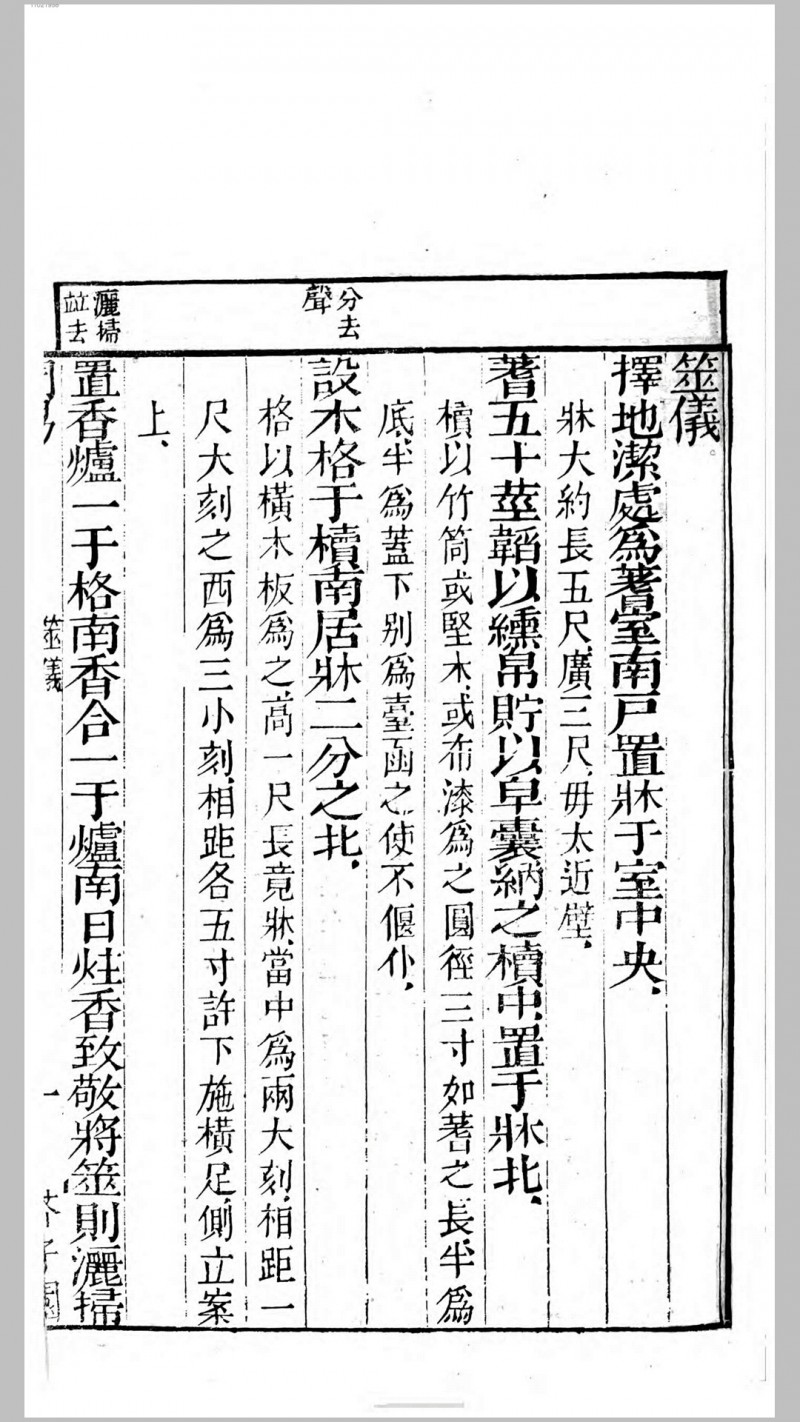 筮儀
擇地潔處爲蓍室南戶置牀于室中央、
牀大約長五尺、廣三尺、毋太近壁、
蓍五十莖韜以纁帛貯以皁囊納之櫝中、置于牀北、
櫝以竹筒或堅木、或布漆爲之圓徑三寸如蓍之長半爲
底、半爲蓋下别爲臺函之使不偃仆、
分去
聲
設木格于櫝南居牀二分之北、
格以橫木板爲之、高一尺長竟牀、當中爲兩大刻、相距一
尺大刻之西爲三小刻、相距各五寸許下施橫足、側立案
上、
灑掃
竝去
置香爐一于格南香合一于爐南日炷香致敬將筮則灑掃
筮儀
一
芥子園